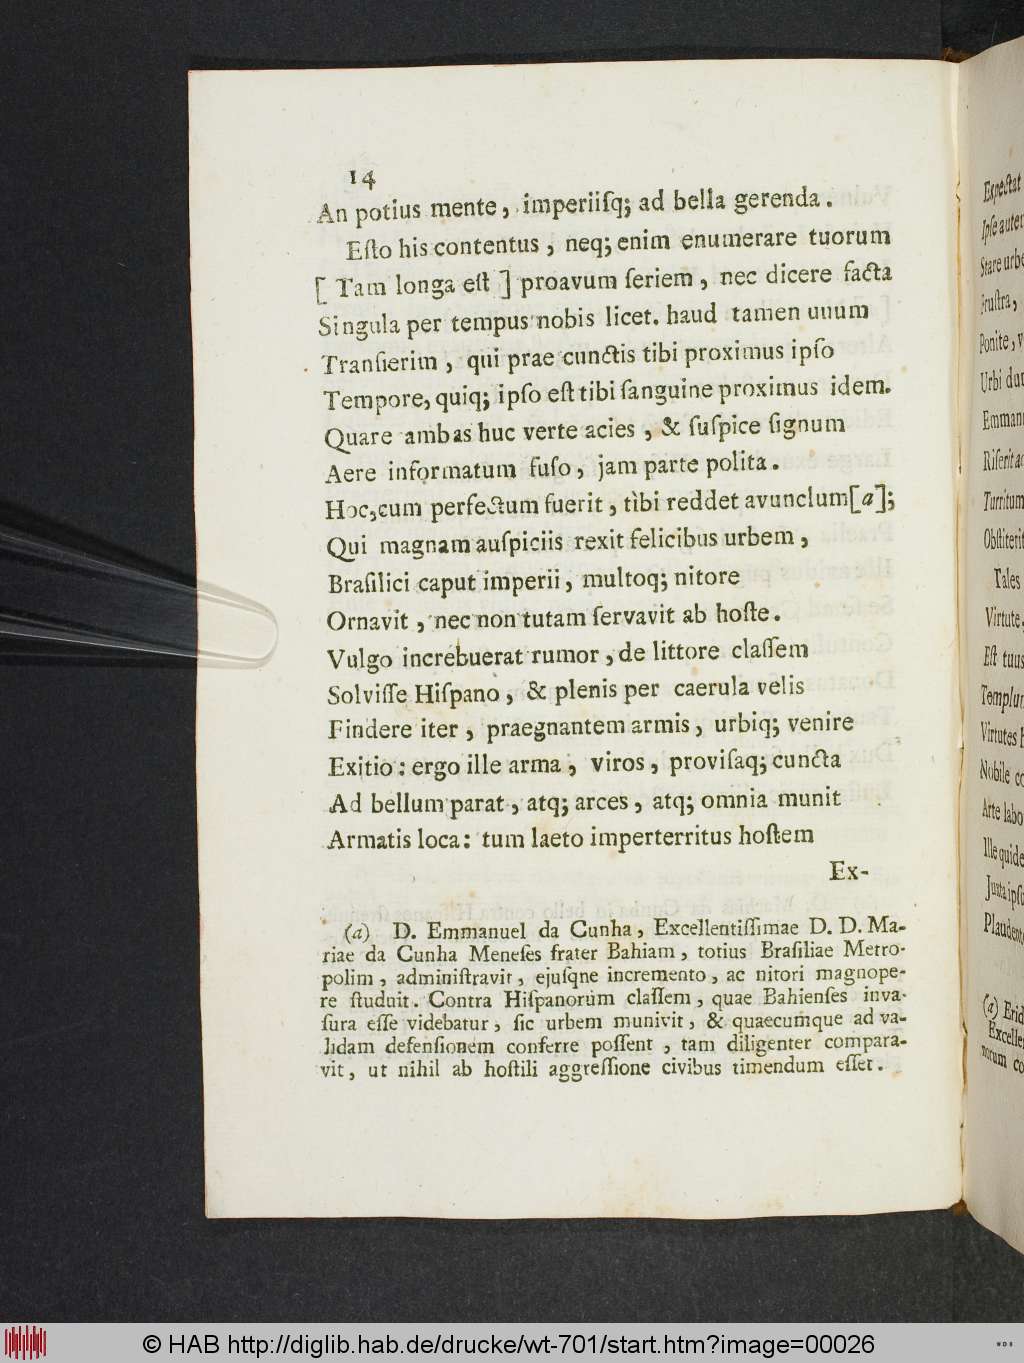 14
An potius mente, imperiiſq; ad bella gerenda.
Eſto his contentus, neq; enim enumerare tuorum
[ Tam longa eſt ] proavum ſeriem, nec dicere facta
Singula per tempus nobis licet. haud tamen unum
Tranſierim, qui prae cunctis tibi proximus ipſo
Tempore, quiq; ipſo eſt tibi ſanguine proximus idem.
Quare ambas huc verte acies, & ſuſpice ſignum
Aere informatum fuſo, jam parte polita.
Hoc, cum perfectum fuerit, tibi reddet avunclum[a];
Qui magnam auſpiciis rexit felicibus urbem,
Braſilici caput imperii, multoq; nitore
Ornavit, nec non tutam ſervavit ab hoſte.
Vulgo increbuerat rumor, de littore claſſem
Solviſſe Hiſpano, & plenis per caerula velis
Findere iter, praegnantem armis, urbiq; venire
Exitio: ergo ille arma, viros, proviſaq; cuncta
Ad bellum parat, atq; arces, atq; omnia munit
Armatis loca: tum laeto imperterritus hoſtem
Ex-
(a) D. Emmanuel da Cunha, Excellentiſſimae D. D. Ma-
riae da Cunha Meneſes frater Bahiam, totius Braſiliae Metro-
polim, adminiſtravit, ejuſqne incremento, ac nitori magnope-
re ſtuduit. Contra Hiſpanorum claſſem, quae Bahienſes inva-
ſura eſſe videbatur, ſic urbem munivit, & quaecumque ad va-
lidam defenſionem conferre poſſent, tam diligenter compara-
vit, ut nihil ab hoſtili aggreſſione civibus timendum eſſet.
Expectat
Ipſe autem
Stare urbe
Fruſtra,
Ponite,
Urbi
Riſerit
Turritum
Obſtiterit
Tales
Virtute.
Eſt tuus
Virtutes
Nobile
Arte
Ille quide
Juxta ipſu
(a)
© HAB http://diglib.hab.de/drucke/wt-701/start.htm?image=00026